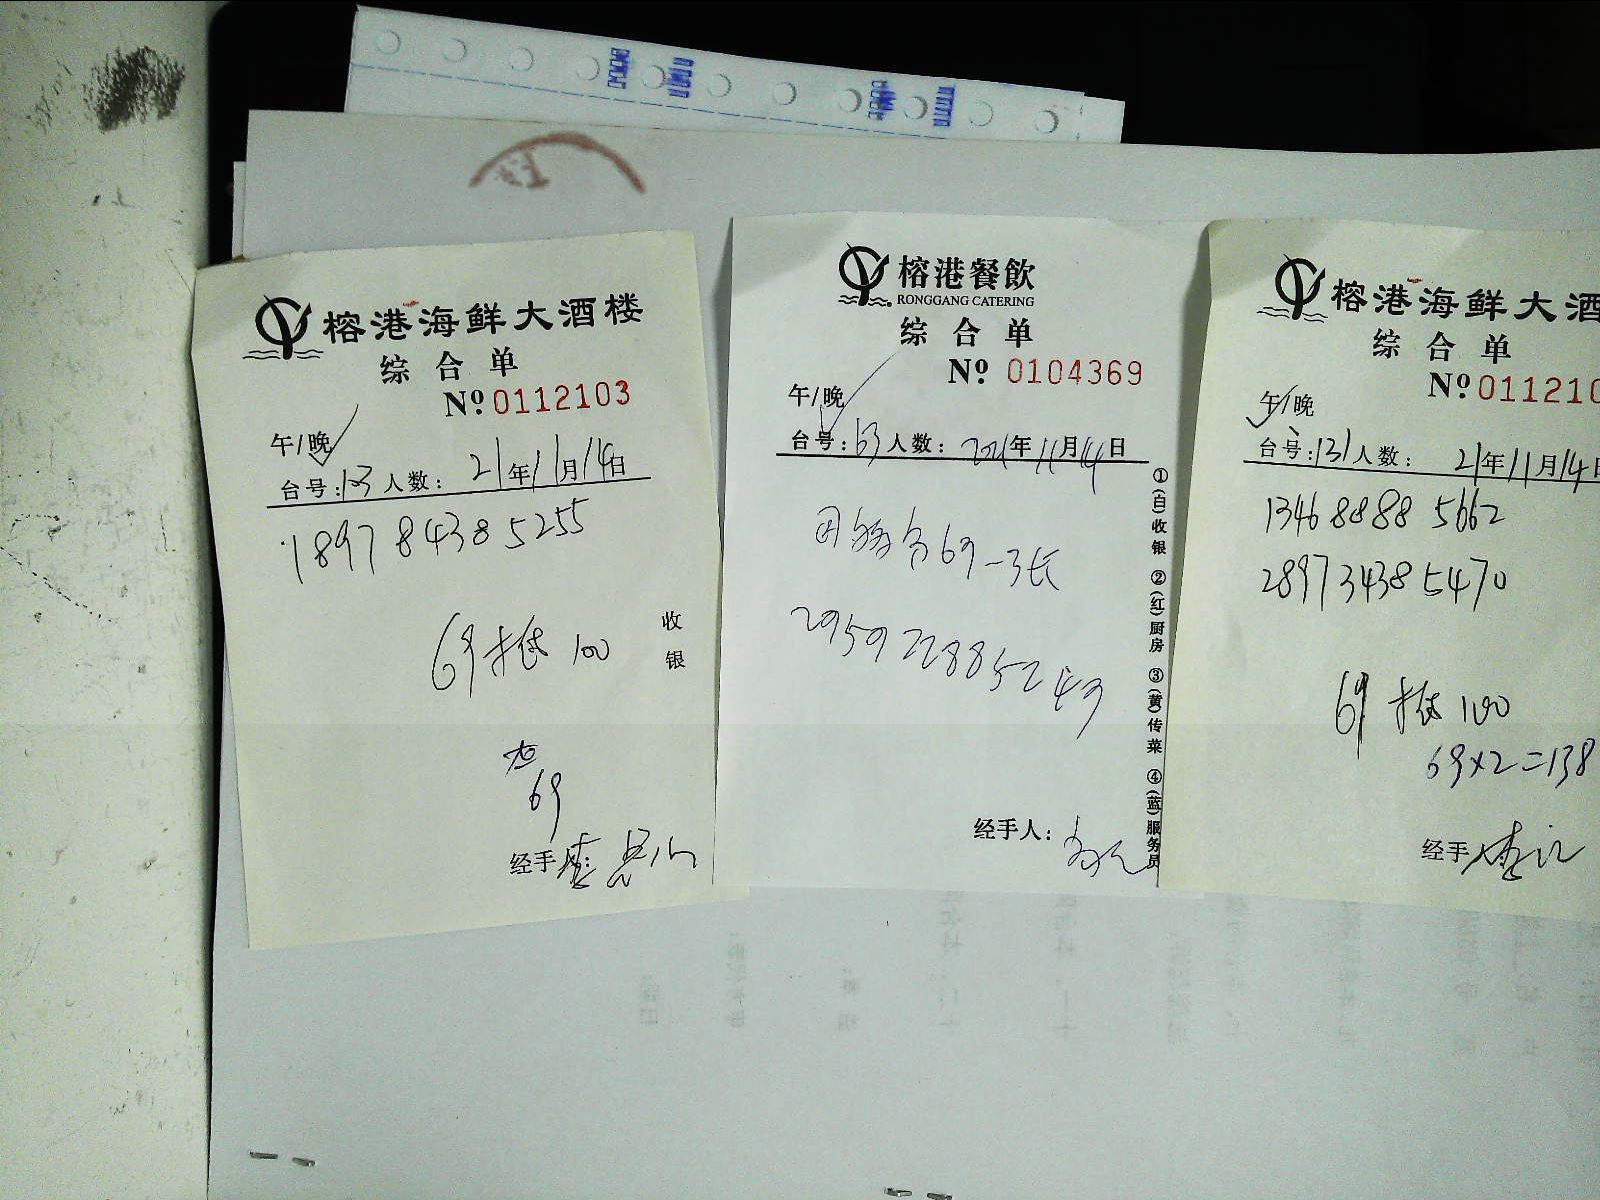 榕港海鲜大酒楼
综合单
Nº 0112103
午/晚
台号: 人数: 21年11月14日
1897 8438 5255
69抵100
收银
69
经手
榕港餐飲
RONGGANG CATERING
综合单
Nº 0104369
午/晚
台号:63人数: 2021年11月14日
团购多69一张
2959 2288 5243
经手人:
①(白)收银 ②(红)厨房 ③(黄)传菜 ④(蓝)服务员
榕港海鲜大酒
综合单
Nº 011210
午/晚
台号:131人数: 21年11月14日
1346 8888 5662
2897 3438 5470
69抵100
69×2=138
经手人